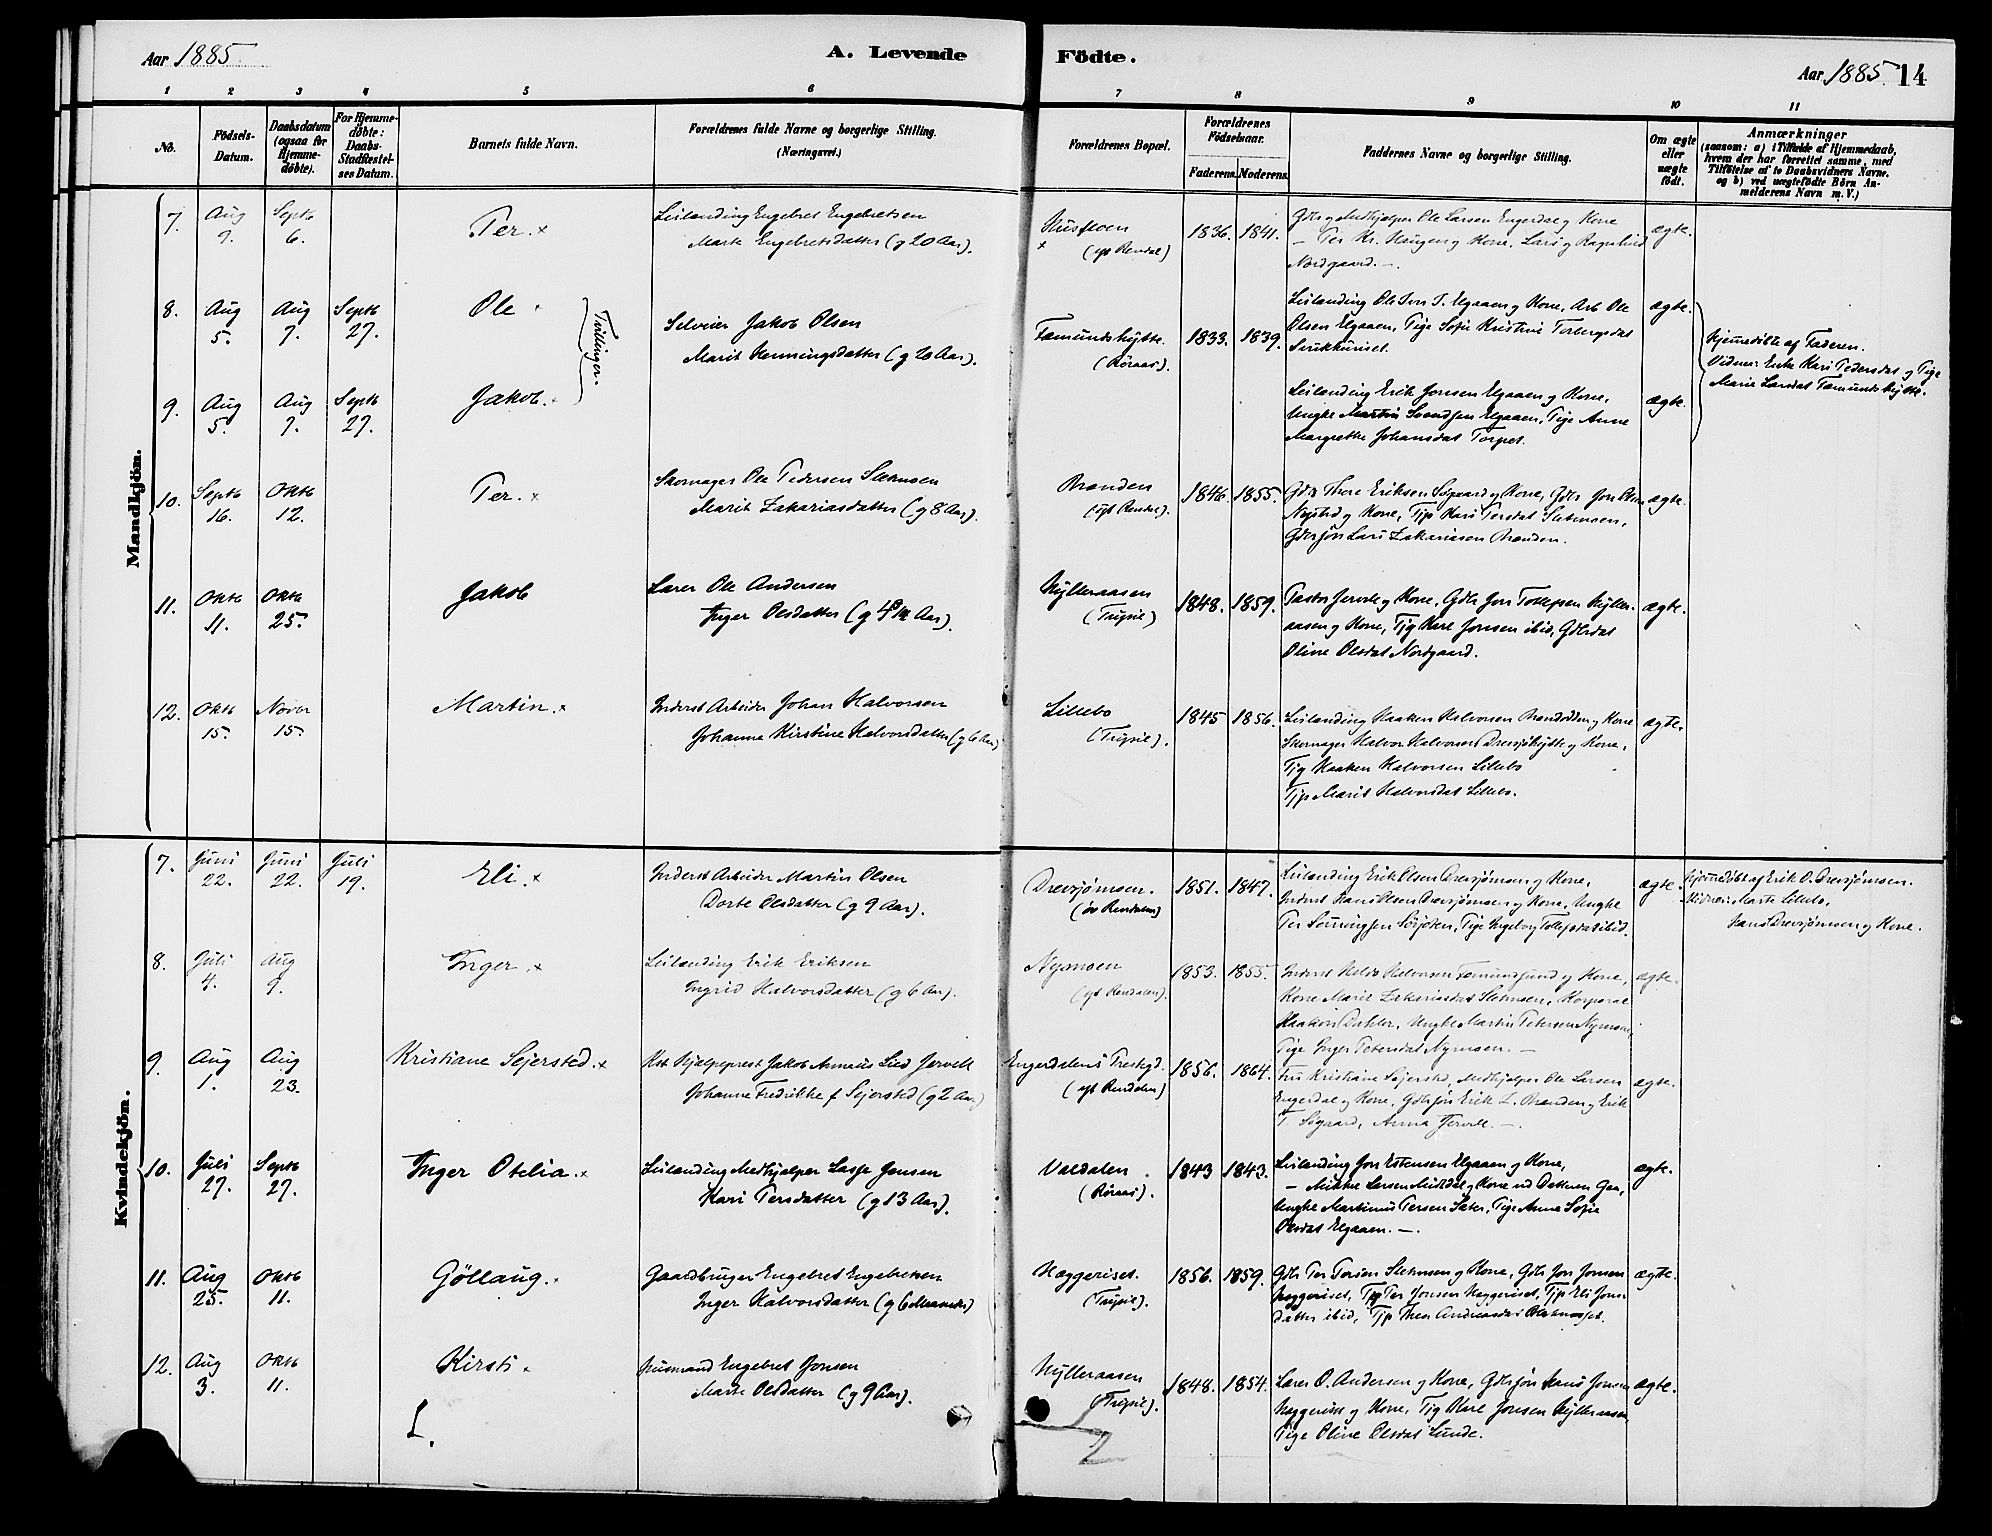 Aar 1885.
A. Levende
Födte.
Aar 1885. 14
1 2 3 4 5 6 7 8 9 10 11
No.
Födsels-
Datum.
Daabsdatum
(ogsaa for
Hjemme-
døbte).
For Hjemme-
døbte:
Daabs-
Stadfæstel-
ses Datum.
Barnets fulde Navn.
Forældrenes fulde Navne og borgerlige Stilling.
(Næringsvei.)
Forældrenes Bopæl.
Forældrenes
Födselsaar.
Faderens. Moderens.
Faddernes Navne og borgerlige Stilling.
Om ægte
eller
uægte
født.
Anmærkninger
(saasom: a) i Tilfælde af Hjemmedaab,
hvem der har forrettet samme, med
Tilføielse af to Daabsvidners Navne.
og b) ved uægtefødte Börn An-
melderens Navn m. V.)
Mandkjön.
7. Aug 9. Septb 6. Per. x
Leilænding Engebret Engebretsen
Marte Engebretsdatter (g 20 Aar).
(øst Rendal)
1836. 1841.
Gdb og Medhjælper Ole Larsen Engerdal og Kone
— Per Kr. Haugen og Kone, Lars og Ragnhild
Nordgaard. —.
ægte.
8. Aug 5. Aug 7. Septb 27. Ole
Tvillinger.
Selveier Jakob Olsen
Marit Henningsdatter (g 20 Aar).
Fæmundshytte.
(Röraas).
1833. 1839.
Olsen Elgaaen, Pige Sofie Kristine Torbergsdat
ægte.
Hjemmedöbte af Faderen.
Vidner: Enke Kari Pedersdat og Pige
Marie Larsdat Fæmundshytte.
9. Aug 5. Aug 7. Septb 27. Jakob.
Leilænding Erik Jonsen Elgaaen og Kone,
Ungke Martin Svendsen Elgaaen, Pige Anne
Margrethe Johansdat Torpet.
ægte.
10. Septb 16. Oktb 12. Per. x
Skomager Ole Pedersen Sletmoen
Marit Zakariasdatter (g 8 Aar).
Brænden
(øst Rendal).
1846. 1855.
Gdb Thore Eriksen Søgaard og Kone, Gdb Jon Olsen
Nysted og Kone, Pige Kari Persdat Sletmoen,
Gdbsøn Lars Zakariasen Brænden.
ægte.
11. Oktb 11. Oktb 25. Jakob
Lærer Ole Andersen
Inger Olsdatter (g 4 Aar).
Hylleraasen
(Trysil)
1848. 1859.
Pastor Jervell og Kone, Gdb Jon Tollefsen Hyller-
aasen og Kone, Tjg Karl Jonsen ibid, Gdbdat
Oline Olsdat Nordgaard.
ægte.
12. Oktb 15. Novbr 15. Martin. x
Inderst Arbeider Johan Halvorsen
Johanne Kirstine Halvorsdatter (g 6 Aar)
Lillebo
(Trysil).
1845 1856.
Leilænding Haaken Halvorsen Brændodden og Kone
Skomager Halvor Halvorsen Drevsjöhytte og Kone,
Tjg Haaken Halvorsen Lillebo
Tjp Marit Halvorsdat Lillebo.
ægte.
Kvindekjön.
7. Juni 22. Juni 22. Juli 19. Eli. x
Inderst Arbeider Martin Olsen
Dorte Olsdatter (g 9 Aar).
Drevsjömoen.
(øv Rendalen)
1851. 1847.
Leilænding Erik Olsen Drevsjömoen og Kone,
Inderst Hans Olsen Drevsjömoen og Kone, Ungke
Pige Ingeborg Tollefsdat ibid.
ægte.
Hjemmedöbt af Erik O. Drevsjömoen.
Vidner: Marte Lillebo,
Hans Drevsjömoen og Kone.
8. Juli 4. Aug 9. Inger. x
Leilænding Erik Eriksen
Ingrid Halvorsdatter (g 6 Aar).
Nymoen
(øst Rendalen).
1853. 1855.
Inderst Halvor Halvorsen Fæmundsund og Kone,
Kone Marit Zakariasdat Sletmoen, Korporal
Haakon Dahler, Ungke Martin Petersen Nymoen,
Pige Inger Petersdat Nymoen. —
ægte.
9. Aug 1. Aug 23. Kristiane Sejersted. x
Kst Hjælpeprest Jakob Anneus Lied Jervell
Johanne Fredrikke f Sejersted (g 2 Aar)
Engerdalens Prestgd.
(øst Rendalen)
1856. 1864.
Fru Kristiane Sejersted, Medhjælper Ole Larsen
Engerdal og Kone, Gdbsön Erik L. Brænden og Erik
T. Søgaard, Anna Jervell. —.
ægte.
10. Juli 27. Septb 27. Inger Otelia. x
Leilænding Medhjælper Lasse Jensen
Kari Persdatter (g 13 Aar).
Valdalen.
(Röraas).
1843 1843.
Leilænding Jon Estensen Elgaaen og Kone,
Ungke Martinus Persen Sæter, Pige Anne Sofie
Olsdat Elgaaen. —.
ægte.
11. Aug 25. Oktb 11. Göllaug.
Gaardbruger Engebret Engebretsen
Inger Halvorsdatter (g 6 Maaneder)
Haggeriset.
(Trysil).
1856. 1859.
Gdb Per Persen Sletmoen og Kone, Gdb Jon Jonsen
Haggeriset, Tjg Per Jonsen Haggeriset, Tjp Eli Jons-
datter ibid, Tjp Thea Andreasdat
ægte.
12. Aug 3. Oktb 11. Kirsti.
Husmand Engebret Jonsen
Marte Olsdatter (g 9 Aar).
Hylleraasen
(Trysil).
1848. 1854.
Lærer O. Andersen og Kone, Gdbsön Hans Jonsen
Haggeriset og Kone, Tjg Karl Jonsen Hylleraasen,
Pige Oline Olsdat Lunde.
ægte.